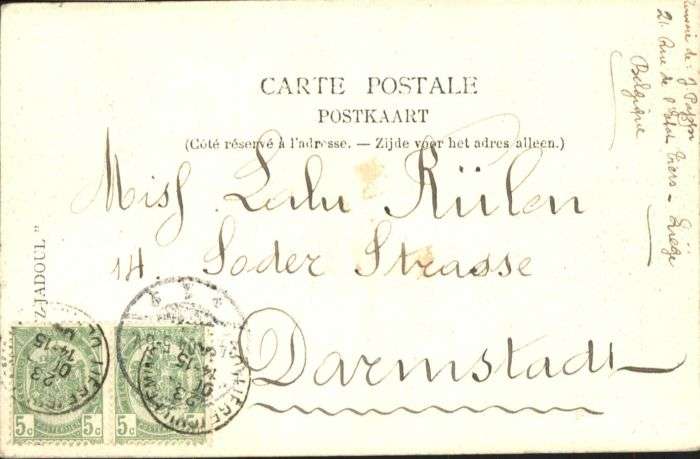 CARTE POSTALE
POSTKAART
(Côté réservé à l'adresse. — Zijde voor het adres alleen.)
Miss Lulu Rülen
14. Soder Strasse
Darmstadt
21 Rue de l'Abbé
Liège
Belgique
Z-JADOUL"
LIEGE (GUILLEMINS)
23
14-15
5c 5c 5c